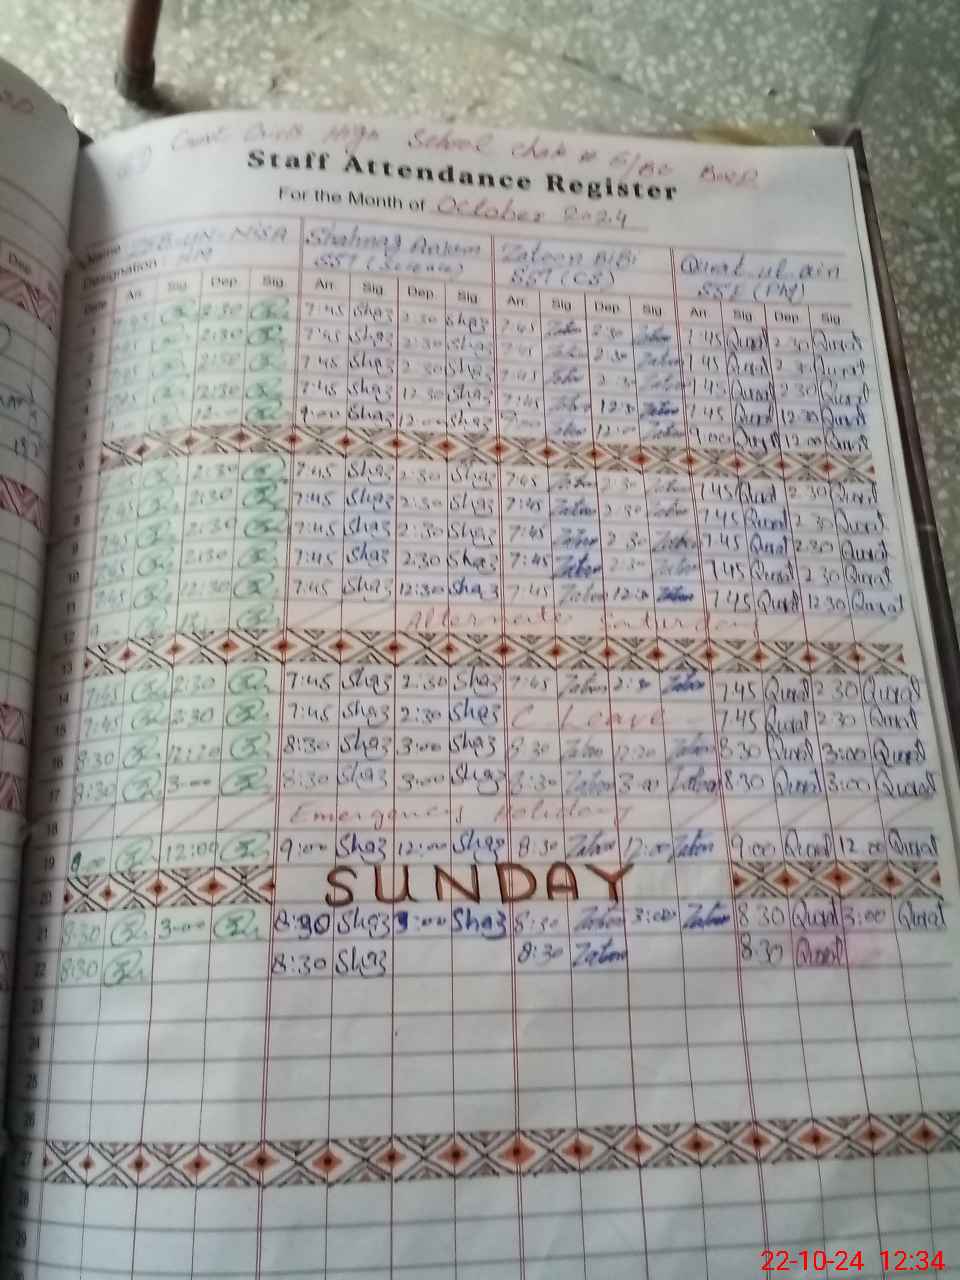 Govt Girls High School Chak # 6/BC BWP.
Staff Attendance Register
For the Month of October 2024
Name -UN-NISA Shahnaz Anjum Zatoon BiBi Qurat-ul-ain
Designation HM SST (Science) SST (CS) SST (PM)
Date Arr. Sig Dep. Sig Arr. Sig. Dep. Sig. Arr. Sig. Dep. Sig. Arr. Sig. Dep. Sig.
1 7:45 2:30 7:45 Shaz 2:30 Shaz 7:45 Zatoon 2:30 Zatoon 7:45 Qurat 2:30 Qurat
2 7:45 2:30 7:45 Shaz 2:30 Shaz 7:45 Zatoon 2:30 Zatoon 7:45 Qurat 2:30 Qurat
3 7:45 2:30 7:45 Shaz 2:30 Shaz 7:45 Zatoon 2:30 Zatoon 7:45 Qurat 2:30 Qurat
4 7:45 12:30 7:45 Shaz 12:30 Shaz 7:45 Zatoon 12:30 Zatoon 7:45 Qurat 12:30 Qurat
5 12:00 9:00 Shaz 12:00 Shaz 9:00 Zatoon 12:00 Zatoon 9:00 Qurat 12:00 Qurat
6
7 7:45 2:30 7:45 Shaz 2:30 Shaz 7:45 Zatoon 2:30 Zatoon 7:45 Qurat 2:30 Qurat
8 7:45 2:30 7:45 Shaz 2:30 Shaz 7:45 Zatoon 2:30 Zatoon 7:45 Qurat 2:30 Qurat
9 7:45 2:30 7:45 Shaz 2:30 Shaz 7:45 Zatoon 2:30 Zatoon 7:45 Qurat 2:30 Qurat
10 7:45 2:30 7:45 Shaz 2:30 Shaz 7:45 Zatoon 2:30 Zatoon 7:45 Qurat 2:30 Qurat
11 7:45 12:30 7:45 Shaz 12:30 Shaz 7:45 Zatoon 12:30 Zatoon 7:45 Qurat 12:30 Qurat
12 Alternate Saturday
13
14 7:45 2:30 7:45 Shaz 2:30 Shaz 7:45 Zatoon 2:30 Zatoon 7:45 Qurat 2:30 Qurat
15 7:45 2:30 7:45 Shaz 2:30 Shaz C Leave 7:45 Qurat 2:30 Qurat
16 8:30 12:20 8:30 Shaz 3:00 Shaz 8:30 Zatoon 12:20 Zatoon 8:30 Qurat 3:00 Qurat
17 8:30 3:00 8:30 Shaz 3:00 Shaz 8:30 Zatoon 3:00 Zatoon 8:30 Qurat 3:00 Qurat
18 Emergency Holiday
19 9:00 12:00 9:00 Shaz 12:00 Shaz 8:30 Zatoon 12:00 Zatoon 9:00 Qurat 12:00 Qurat
20 SUNDAY
21 8:30 3:00 8:30 Shaz 3:00 Shaz 8:30 Zatoon 3:00 Zatoon 8:30 Qurat 3:00 Qurat
22 8:30 8:30 Shaz 8:30 Zatoon 8:30 Qurat
23
24
25
26
27
28
29
22-10-24 12:34